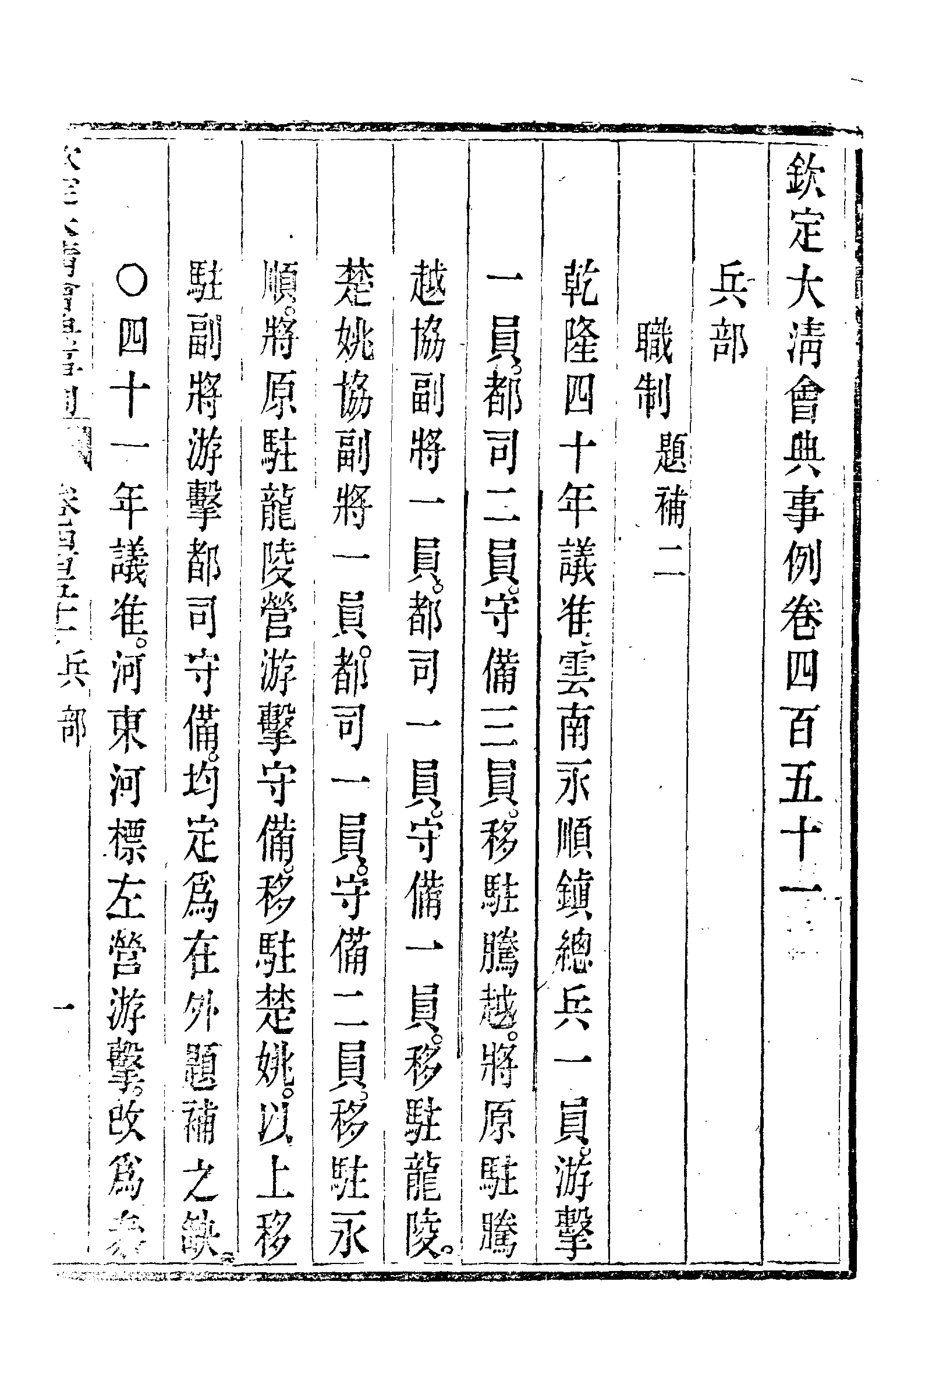 欽定大清會典事例卷四百五十一
兵部
職制 題補二
乾隆四十年議准。雲南永順鎮總兵一員。游擊
一員。都司二員。守備三員。移駐騰越。將原駐騰
越協副將一員。都司一員。守備一員。移駐龍陵。
楚姚協副將一員。都司一員。守備二員。移駐永
順。將原駐龍陵營游擊守備。移駐楚姚。以上移
駐副將游擊都司守備。均定爲在外題補之缺。
○四十一年議准。河東河標左營游擊。改爲叅
欽定大清會典事例 卷四百五十一 兵部 一